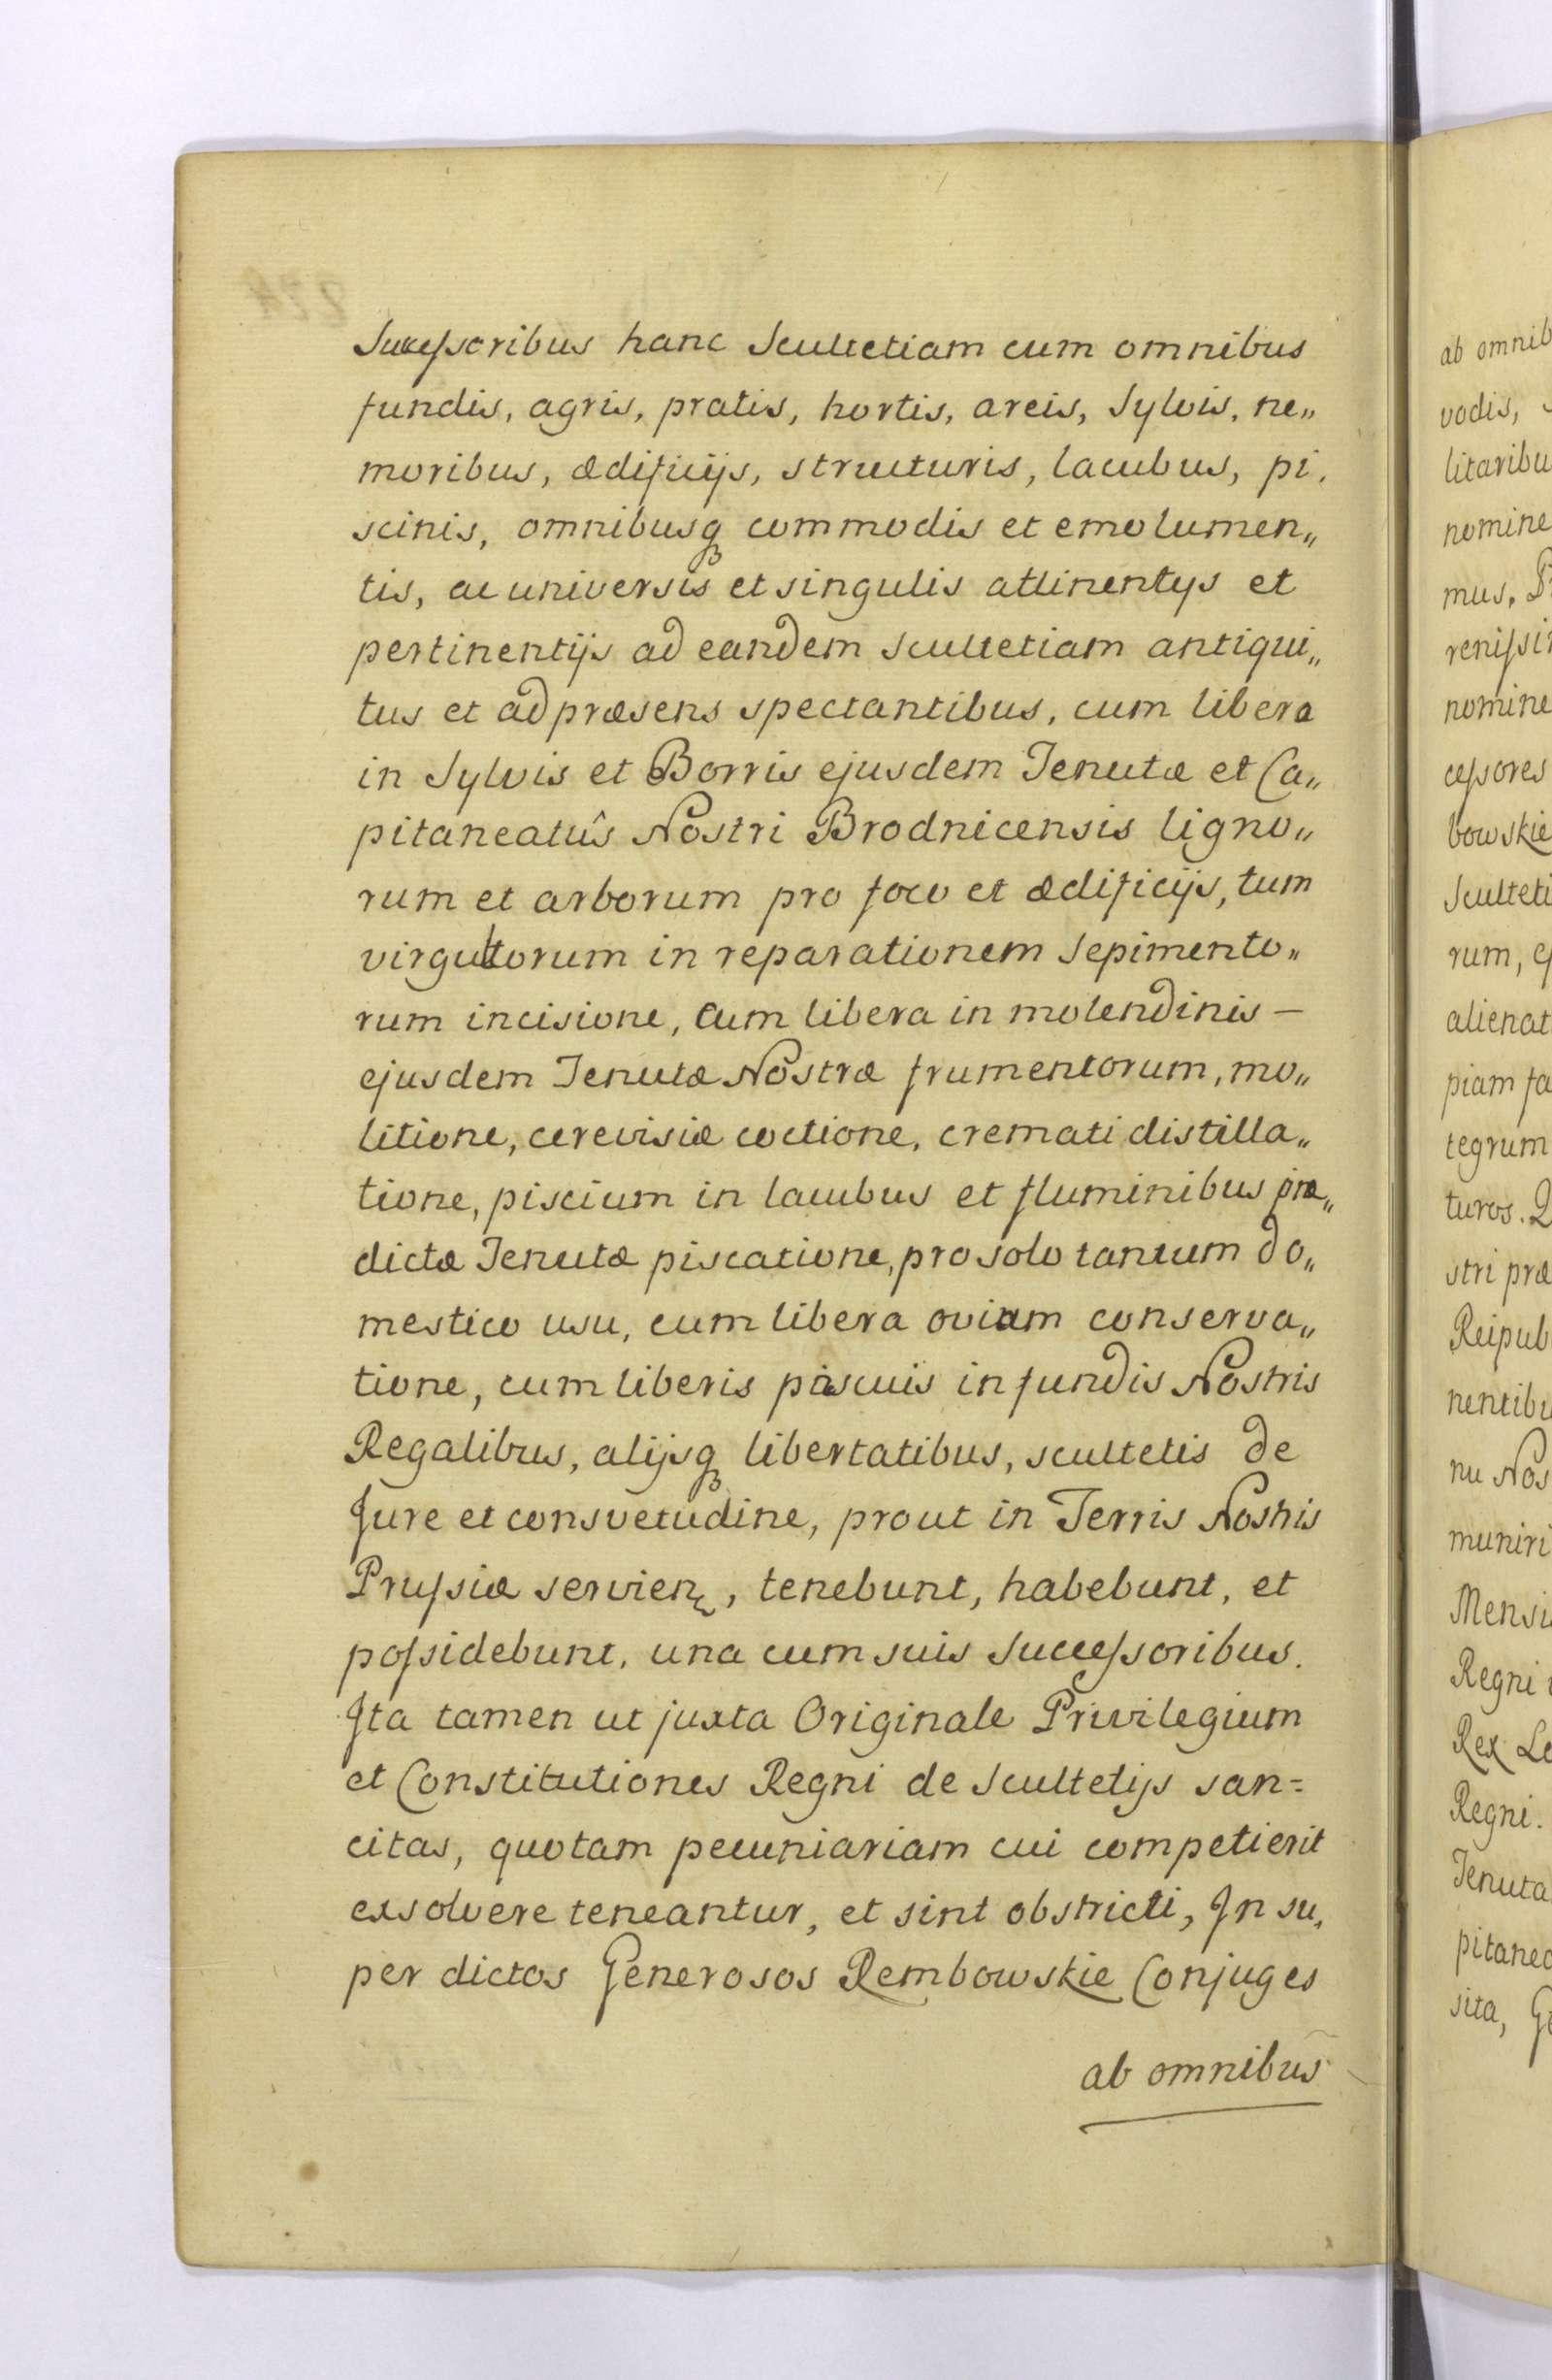 Successoribus hanc Scultetiam cum omnibus
fundis, agris, pratis, hortis, areis, Sylvis, ne„
moribus, ædificijs, structuris, lacubus, pi,
scinis, omnibusq commodis et emolumen„
tis, ac universis et singulis attinentijs et
pertinentijs ad eandem Scultetiam antiqui„
tus et ad præsens spectantibus, cum libera
in Sylvis et Borris ejusdem Tenutæ et Ca„
pitaneatûs Nostri Brodnicensis ligno„
rum et arborum pro foco et ædificijs, tum
virgultorum in reparationem Sepimento„
rum incisione, cum libera in molendinis —
ejusdem Tenutæ Nostræ frumentorum, mo„
litione, cerevisiæ coctione, cremati distilla„
tione, piscium in lacubus et fluminibus præ„
dictæ Tenutæ piscatione, pro solo tantum do„
mestico usu, cum libera ovium conserva„
tione, cum liberis pascuis in fundis Nostris
Regalibus, alijsq libertatibus, scultetis de
Jure et consvetudine, prout in Terris Nostris
Prussiæ servien, tenebunt, habebunt, et
possidebunt, una cum suis Successoribus.
Ita tamen ut juxta Originale Privilegium
et Constitutiones Regni de Scultetijs san=
citas, quotam pecuniariam cui competierit
exsolvere teneantur, et sint obstricti, In su,
per dictos Generosos Rembowskie Conjuges
ab omnibus
ab omnib
vodis,
litaribu
nomine
mus. P
renissi
nomine
cessores
bowskie
Sculteti
rum, e
alienat
piam fa
tegrum
turos. Q
stri præ
Reipub
nentibu
nu Nos
muniri
Mensi
Regni
Rex Le
Regni.
Tenuta
pitanea
sita, Ge